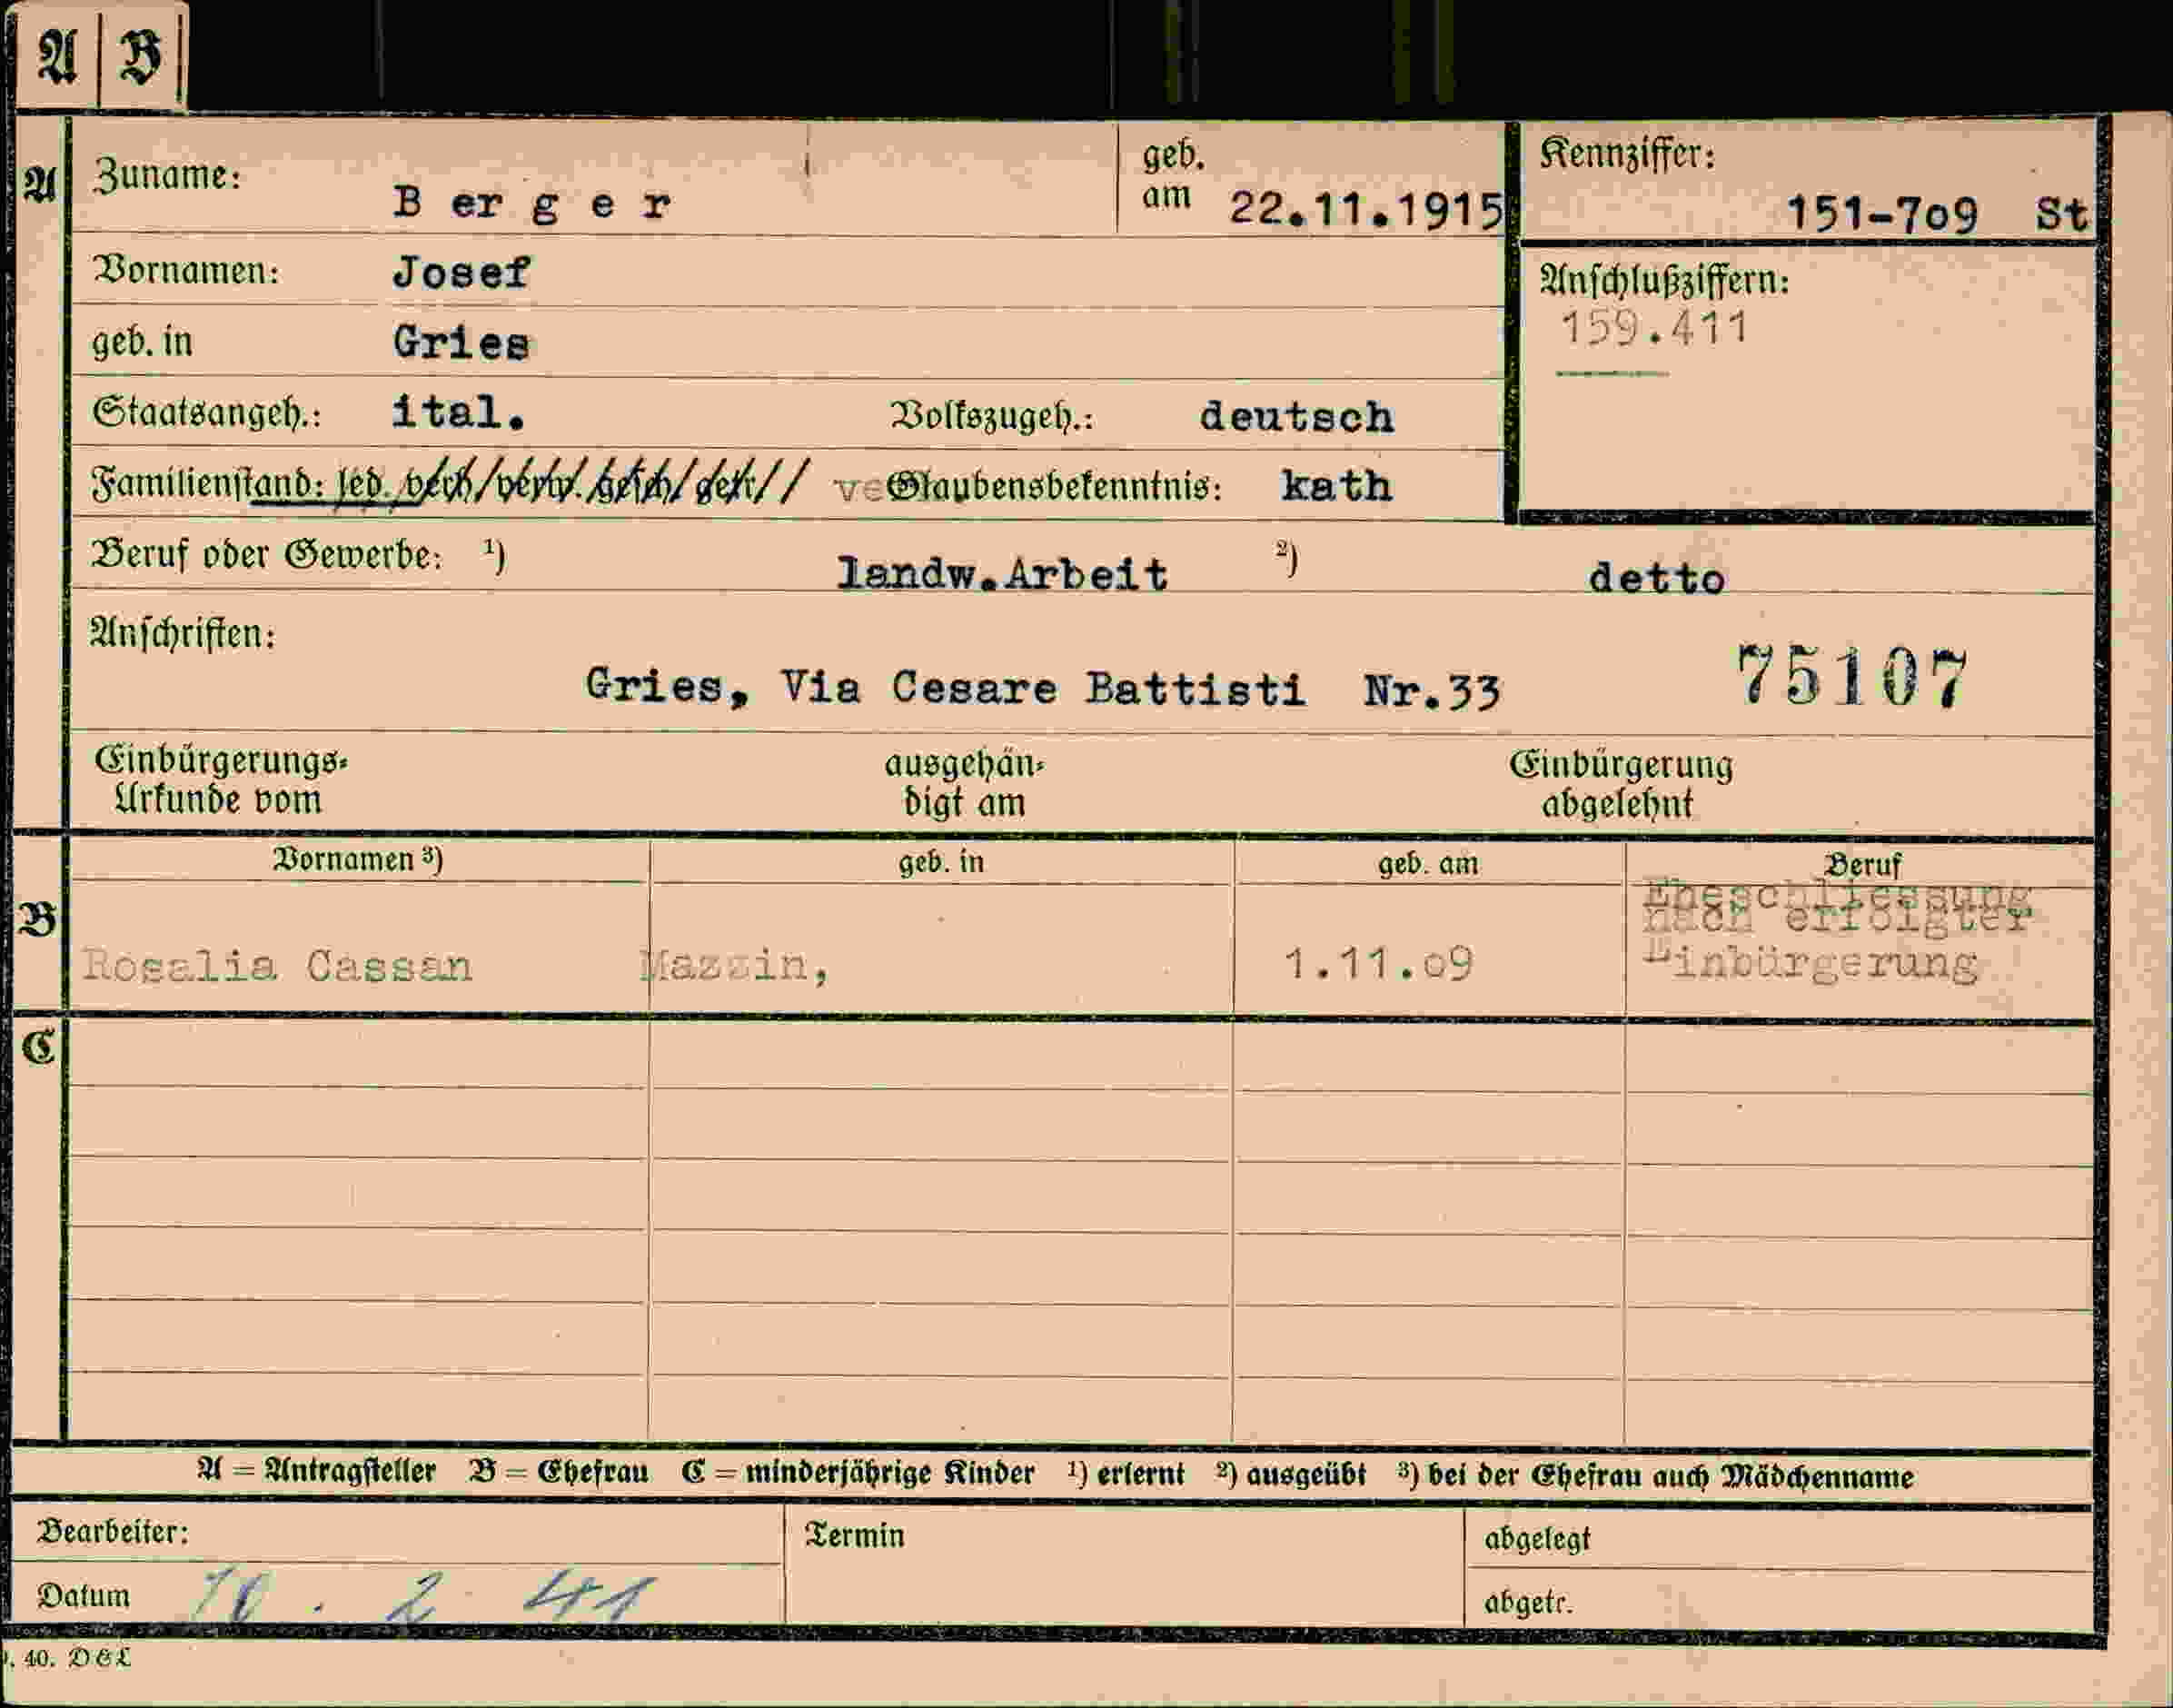 A B
A Zuname: B er g e r geb. am 22.11.1915 Kennziffer: 151-7o9 St
Vornamen: Josef Anschlußziffern:
159.411
geb. in Gries
Staatsangeh.: ital. Volkszugeh.: deutsch
Familienstand: led. verh. verw. gesch. getr. ve Glaubensbekenntnis: kath
Beruf oder Gewerbe: ¹) landw.Arbeit ²) detto
Anschriften:
Gries, Via Cesare Battisti Nr.33 75107
Einbürgerungs= ausgehän= Einbürgerung
Urkunde vom digt am abgelehnt
Vornamen ³) geb. in geb. am Beruf
B Eheschliessung
nach erfolgter
Rosalia Cassan Mazzin, 1.11.o9 Einbürgerung
C
A = Antragsteller B = Ehefrau C = minderjährige Kinder ¹) erlernt ²) ausgeübt ³) bei der Ehefrau auch Mädchenname
Bearbeiter: Termin abgelegt
Datum 2 41 abgetr.
40. D&L